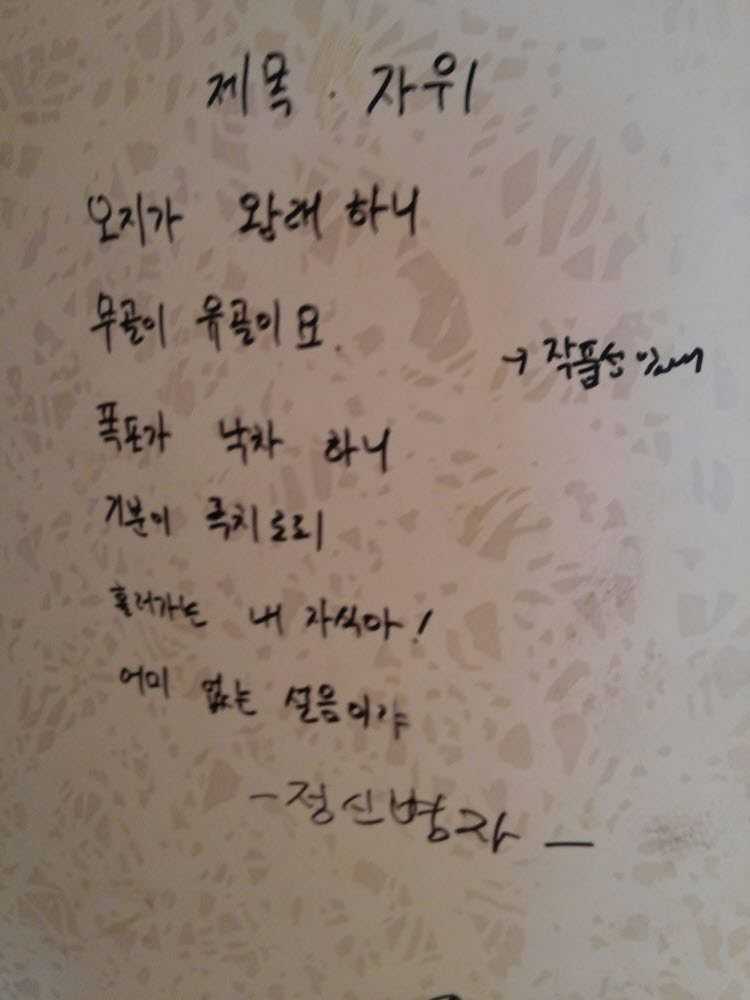 제목 · 자위
오지가 왕래 하니
무골이 유골이요.
폭포가 낙차 하니
기분이 극치로리
흘러가는 내 자식아!
어미 없는 설음이야
→ 작품성 있네
- 정신병자 -